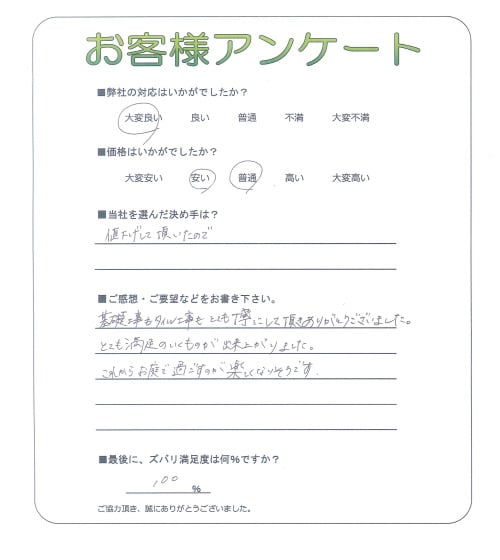 お客様アンケート
■弊社の対応はいかがでしたか？
大変良い 良い 普通 不満 大変不満
■価格はいかがでしたか？
大変安い 安い 普通 高い 大変高い
■当社を選んだ決め手は？
値下げして頂いたので
■ご感想・ご要望などをお書き下さい。
基礎工事もタイル工事もとても丁寧にして頂きありがとうございました。
とても満足のいくものが出来上がりました。
これからお庭で過ごすのが楽しくなりそうです.
■最後に、ズバリ満足度は何％ですか？
100 ％
ご協力頂き、誠にありがとうございました。